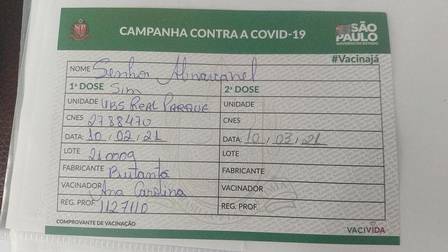 CAMPANHA CONTRA A COVID-19
SÃO PAULO
GOVERNO DO ESTADO
#Vacinajá
NOME Senhor Abravanel
1ª DOSE Sim 2ª DOSE
UNIDADE UBS REAL PARQUE UNIDADE
CNES 2788470 CNES
DATA: 10, 02, 21 DATA: 10, 03, 21
LOTE 210009 LOTE
FABRICANTE Butantã FABRICANTE
VACINADOR Ana Carolina VACINADOR
REG. PROF. 1127110 REG. PROF.
COMPROVANTE DE VACINAÇÃO VACIVIDA